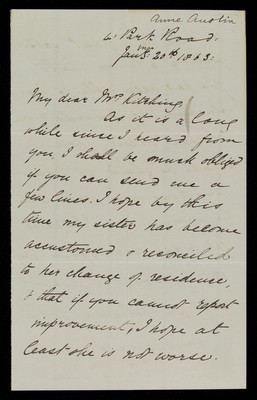 Anne Austin
4. Park Road.
Jany. 20th 1863.
My dear Mr Kitching
As it is a long
while since I heard from
you I shall be much obliged
if you can send me a
few lines. I hope by this
time my sister has become
accustomed & reconciled
to her change of residence,
& that if you cannot report
improvement, I hope at
least she is not worse.